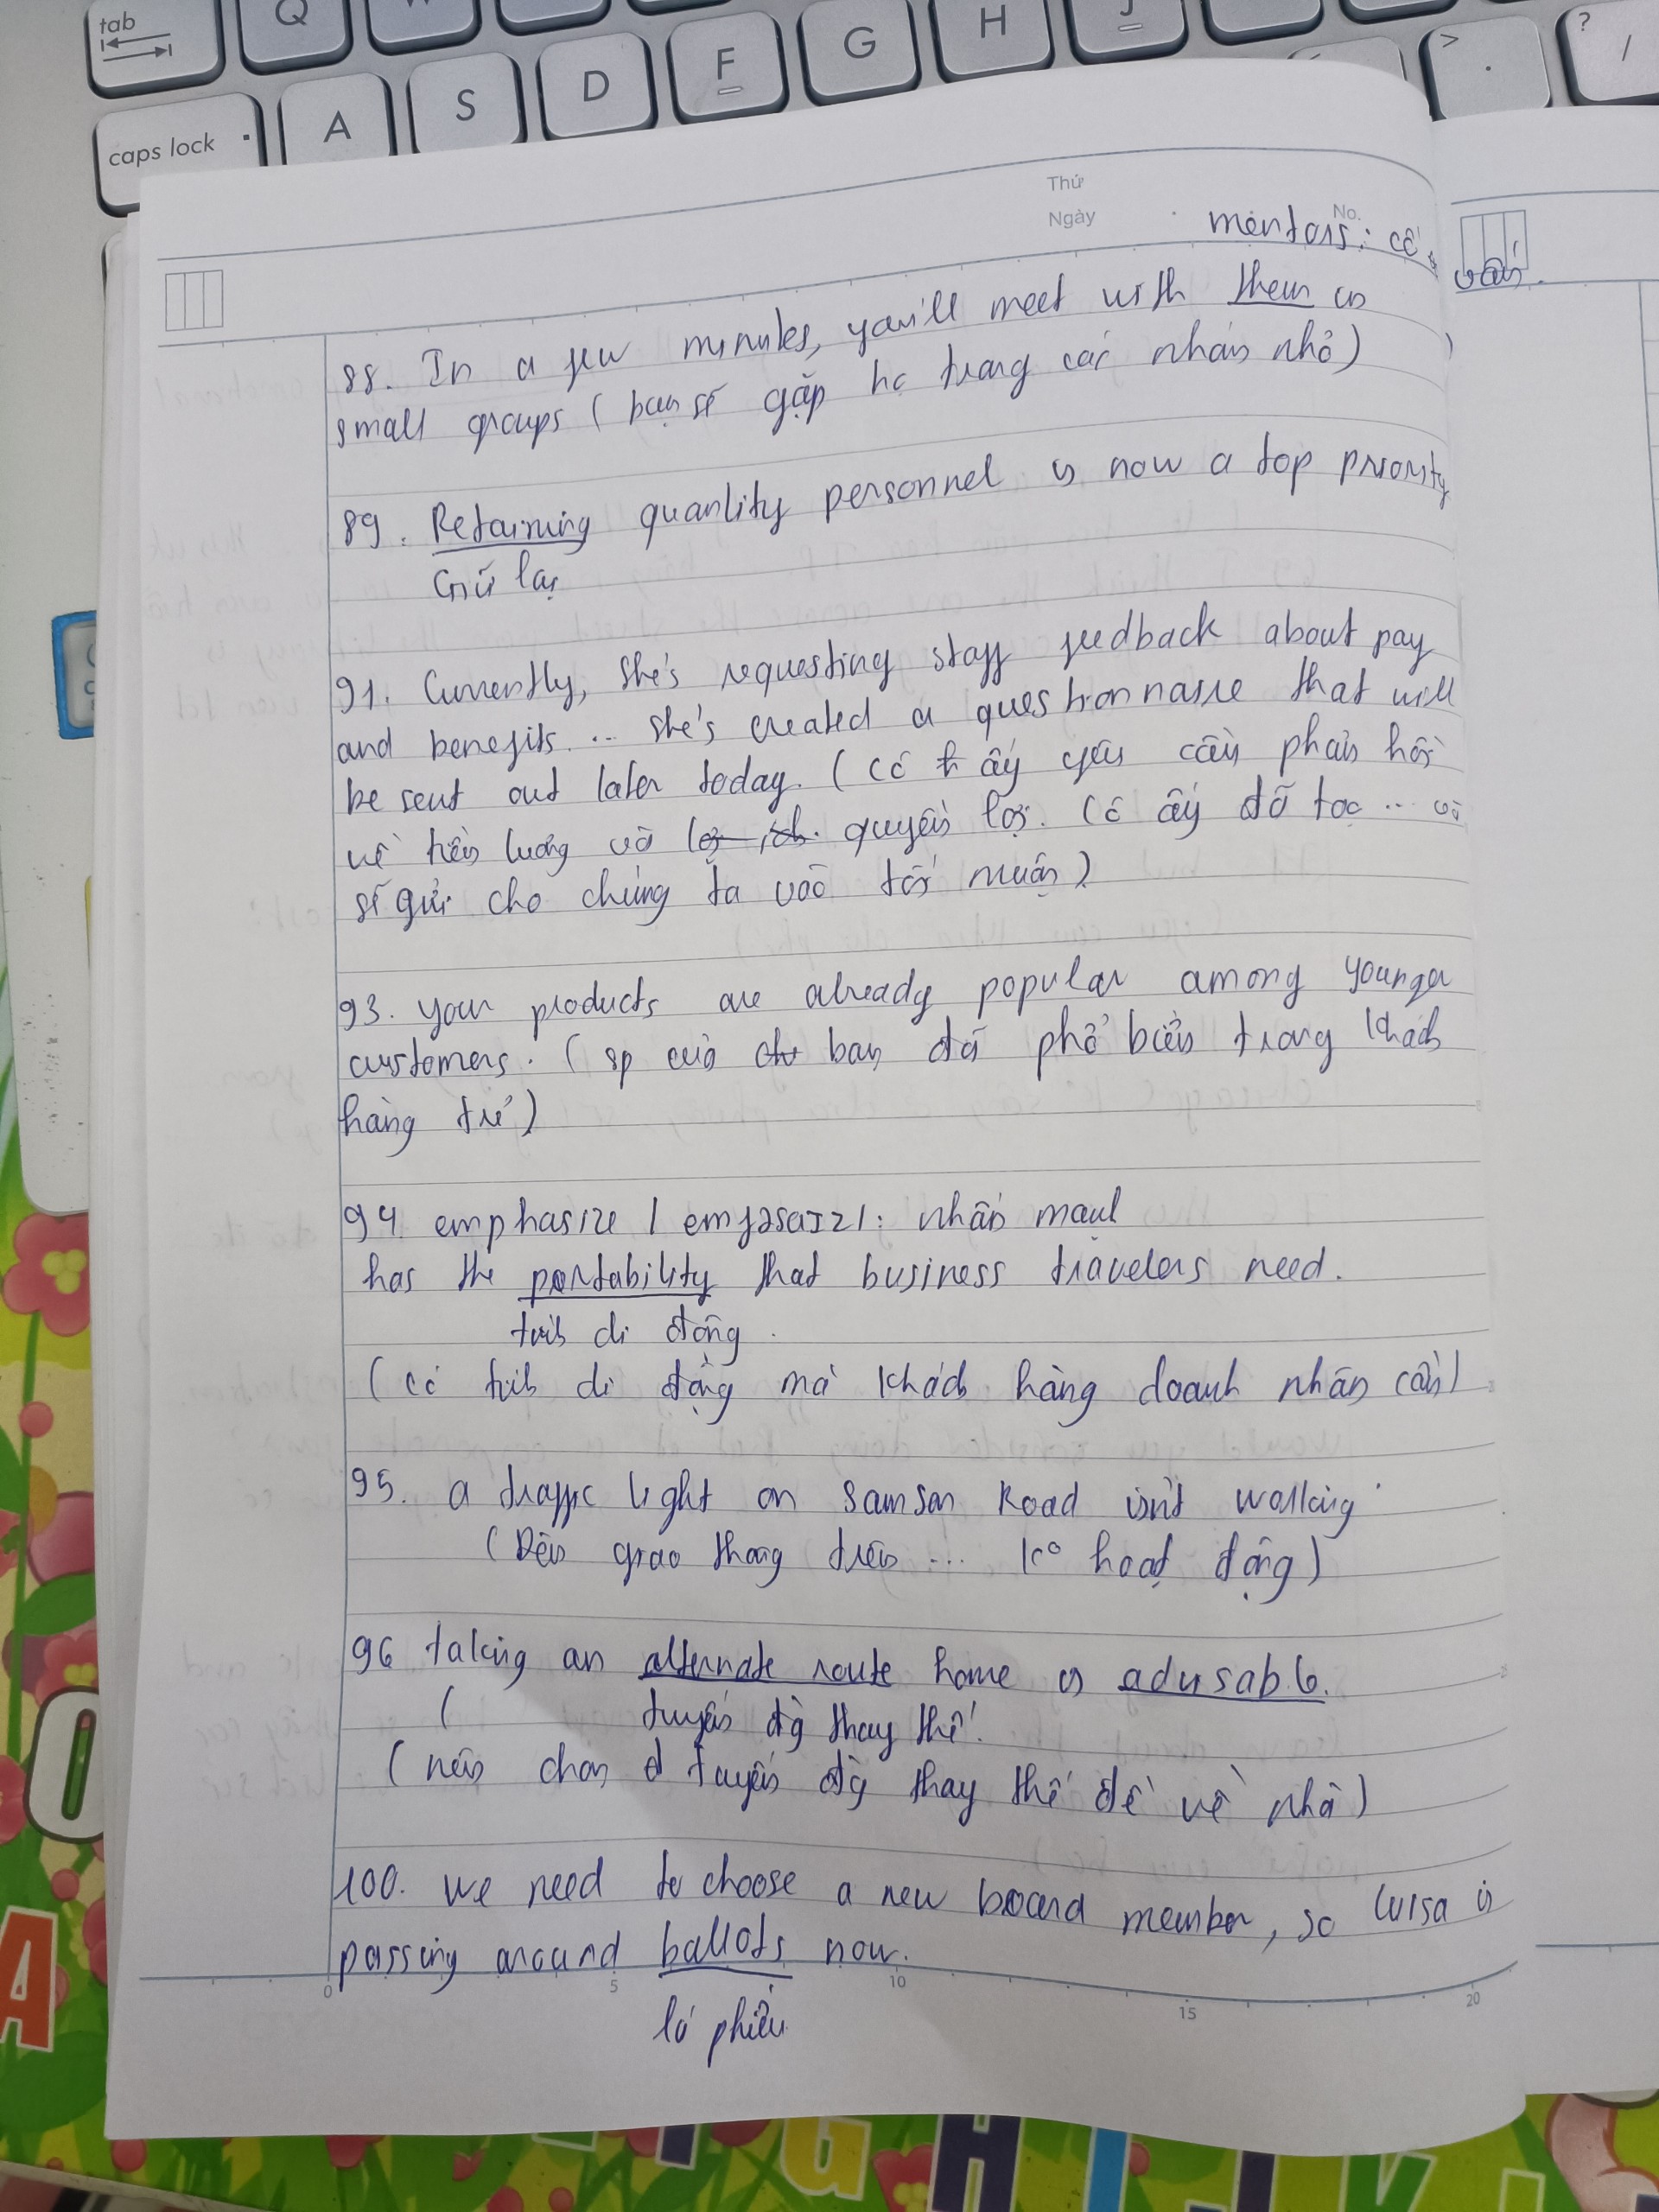 tab
Q
W
H
J
>
.
?
/
caps lock
A
S
D
F
G
Thứ
Ngày
No.
mentors: cố
vấn.
88. In a few minutes, you'll meet with them in
small groups (bạn sẽ gặp họ trong các nhóm nhỏ)
89. Retaining quanlity personnel is now a top priority
Giữ lại
91. Currently, she's requesting staff feedback about pay
and benefits... she's created a questionnaire that will
be sent out later today. (cô ấy yêu cầu phản hồi
về tiền lương và quyền lợi. Cô ấy đã tạo ... và
sẽ gửi cho chúng ta vào tối muộn)
93. your products are already popular among younger
customers. (sp của bạn đã phổ biến trong khách
hàng trẻ)
94. emphasize / emfəsaɪz/: nhấn mạnh
has the portability that business travelers need.
tính di động.
(có tính di động mà khách hàng doanh nhân cần)
95. a traffic light on Samson Road isn't working
(Đèn giao thông trên ... k° hoạt động)
96 taking an alternate route home is advisable.
( tuyến đg thay thế.
(nên chọn tuyến đg thay thế để về nhà)
100. we need to choose a new board member, so Luisa is
passing around ballots now.
lá phiếu
0 5 10 15 20